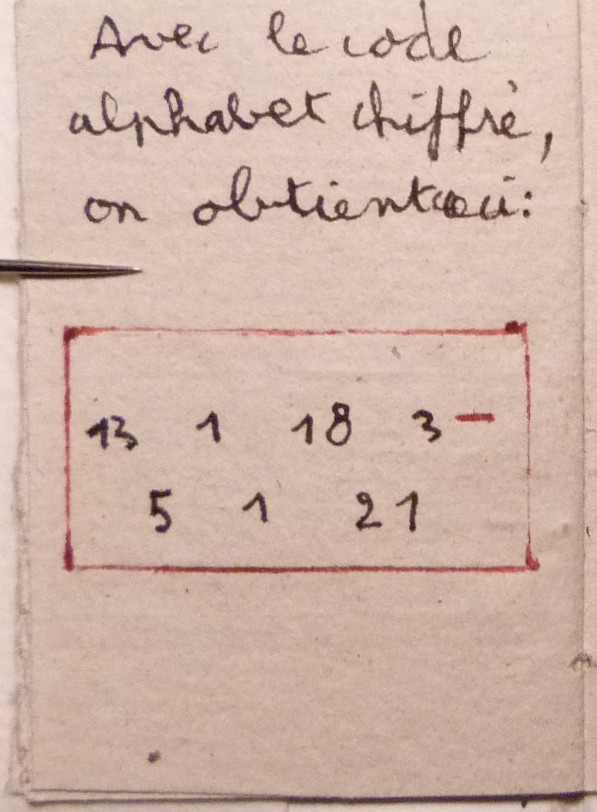 Avec le code
alphabet chiffré,
on obtient ceci:
13 1 18 3-
5 1 21